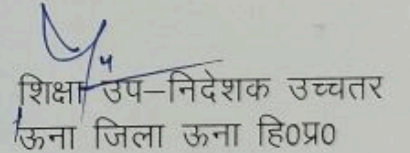 शिक्षा उप–निदेशक उच्चतर
ऊना जिला ऊना हि0प्र0